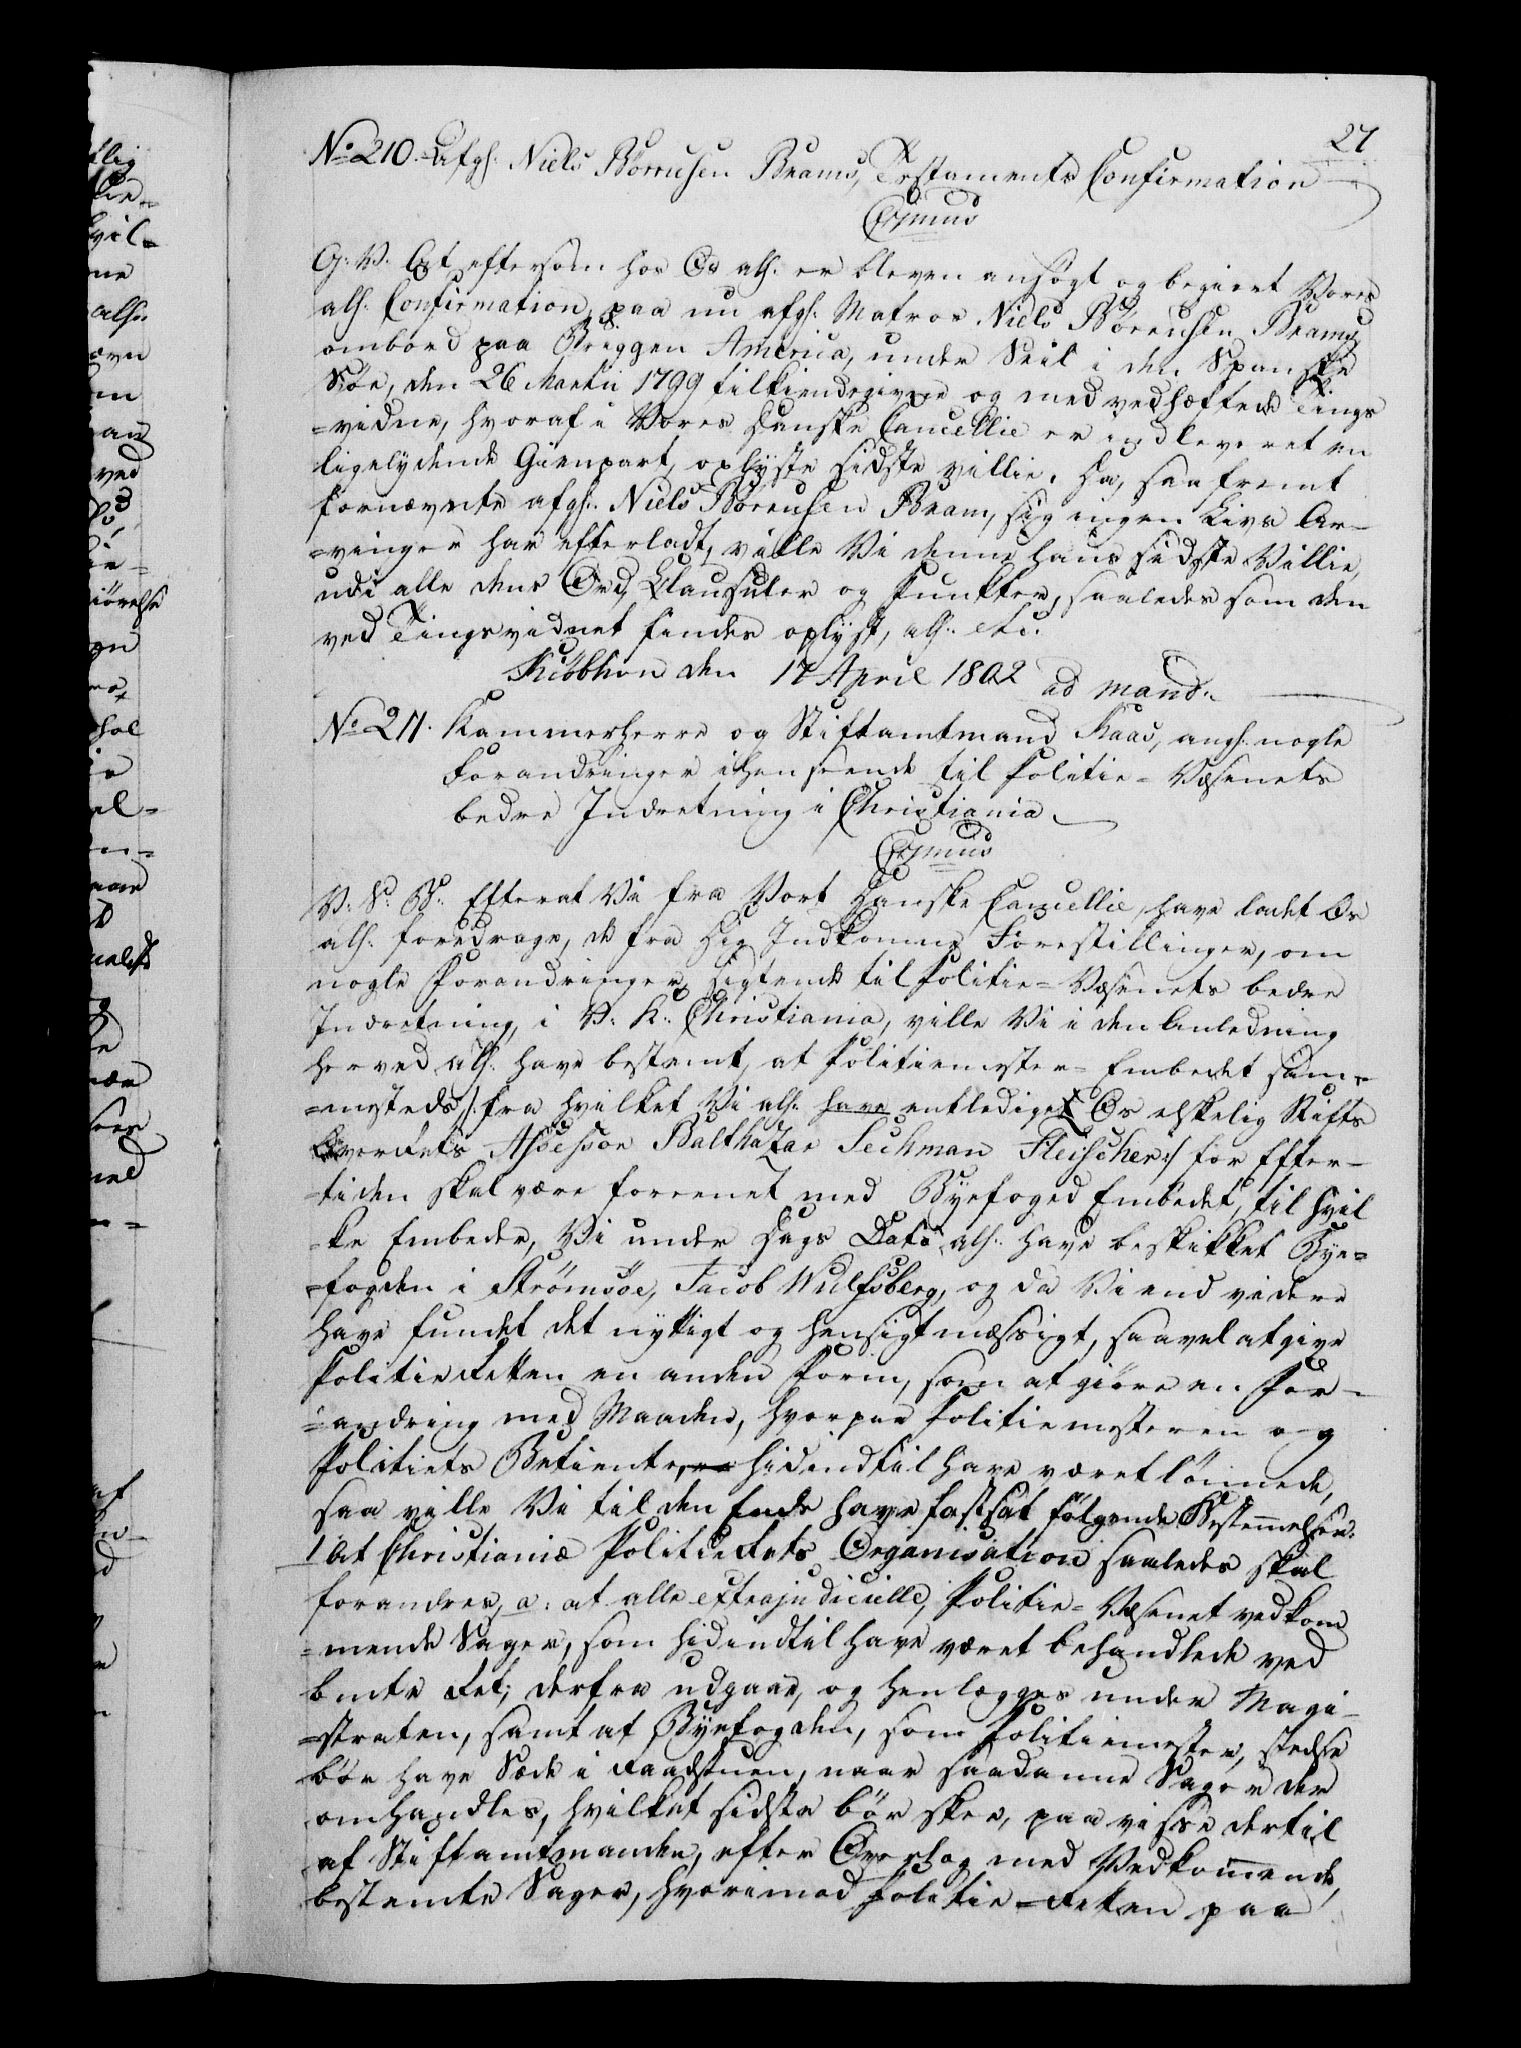 27
No 210. Afgl. Niels Börresen Brams, Testaments Confirmation
C7mus
G: V. At eftersom hos Os all. er bleven ansøgt og begiert Vores
all. Confirmation, paa nu afgl. Matros Niels Börresen Brams,
ombord paa Briggen America, under Seil i den Spanske
Söe, den 26 Martii 1799 tilkiendegivne og med vedhæftede Tings
=vidne, hvoraf i Vores Danske Cancellie er indleveret en
ligelydende Gienpart, oplyste sidste villie. Da, saafremt
fornævnte afgl. Niels Börresen Bram, sig ingen Livs Ar-
=vinger har efterladt, ville Vi denne hans sidste Villie,
udi alle dens Ord, Clausuler og Punkter, saaledes som den
ved Tingsvidnet findes oplyst, all. etc.
Kiöbhvn den 17 April 1802 ad mand.
No 211. Kammerherre og Stiftamtmand Kaas, angl. nogle
Forandringer i henseende til Politie=Væsenets
bedre Indretning i Christiania.
C7mus
V: S: B: Efterat Vi fra Vort Danske Cancellie, have ladet Os
all. foredrage, de fra Dig Indkomne Forestillinger, om
nogle Forandringer, sigtende til Politie=Væsenets bedre
Indretning, i V: K: Christiania, ville Vi i den Anledning
herved all. have bestemt, at Politiemester=Embedet sam-
=mesteds /: fra hvilket Vi all. have entlediget Os elskelig Stifts
Overrets Assessor Balthazar Seckman Fleischer :/ for Efter-
=tiden skal være foreenet med Byefoged Embedet, til hvil
=ke Embeder, Vi under Dags Dato all. have beskikket Bye=
=fogden i Strømsöe, Jacob Wulfsberg, og da Vi end videre
have fundet det nyttigt og hensigtmæssigt, saavel at give
Politieretten en anden Form, som at giöre en For-
=andring med Maaden, hvorpaa Politiemesteren og
Politiets Betiente, hidindtil have været lönnede,
saa ville Vi til den Ende have fastsat følgende Bestemmelser:
1 At Christianiæ Politierets Organisation saaledes skal
forandres, a: at alle extrajudicielle, Politie=Væsenet vedkom
=mende Sager, som hidindtil have været behandlede ved
bmte Ret; derfra udgaae, og henlægges under Magi-
=straten, samt at Byefogden, som Politiemester, stedse
bör have Sæde i Raadstuen, naar saadanne Sager der
omhandles, hvilket sidste bör skee, paa visse dertil
af Stiftamtmanden, efter Overlæg med Vedkommende,
bestemte Dager, hvorimod Politie=Retten paa